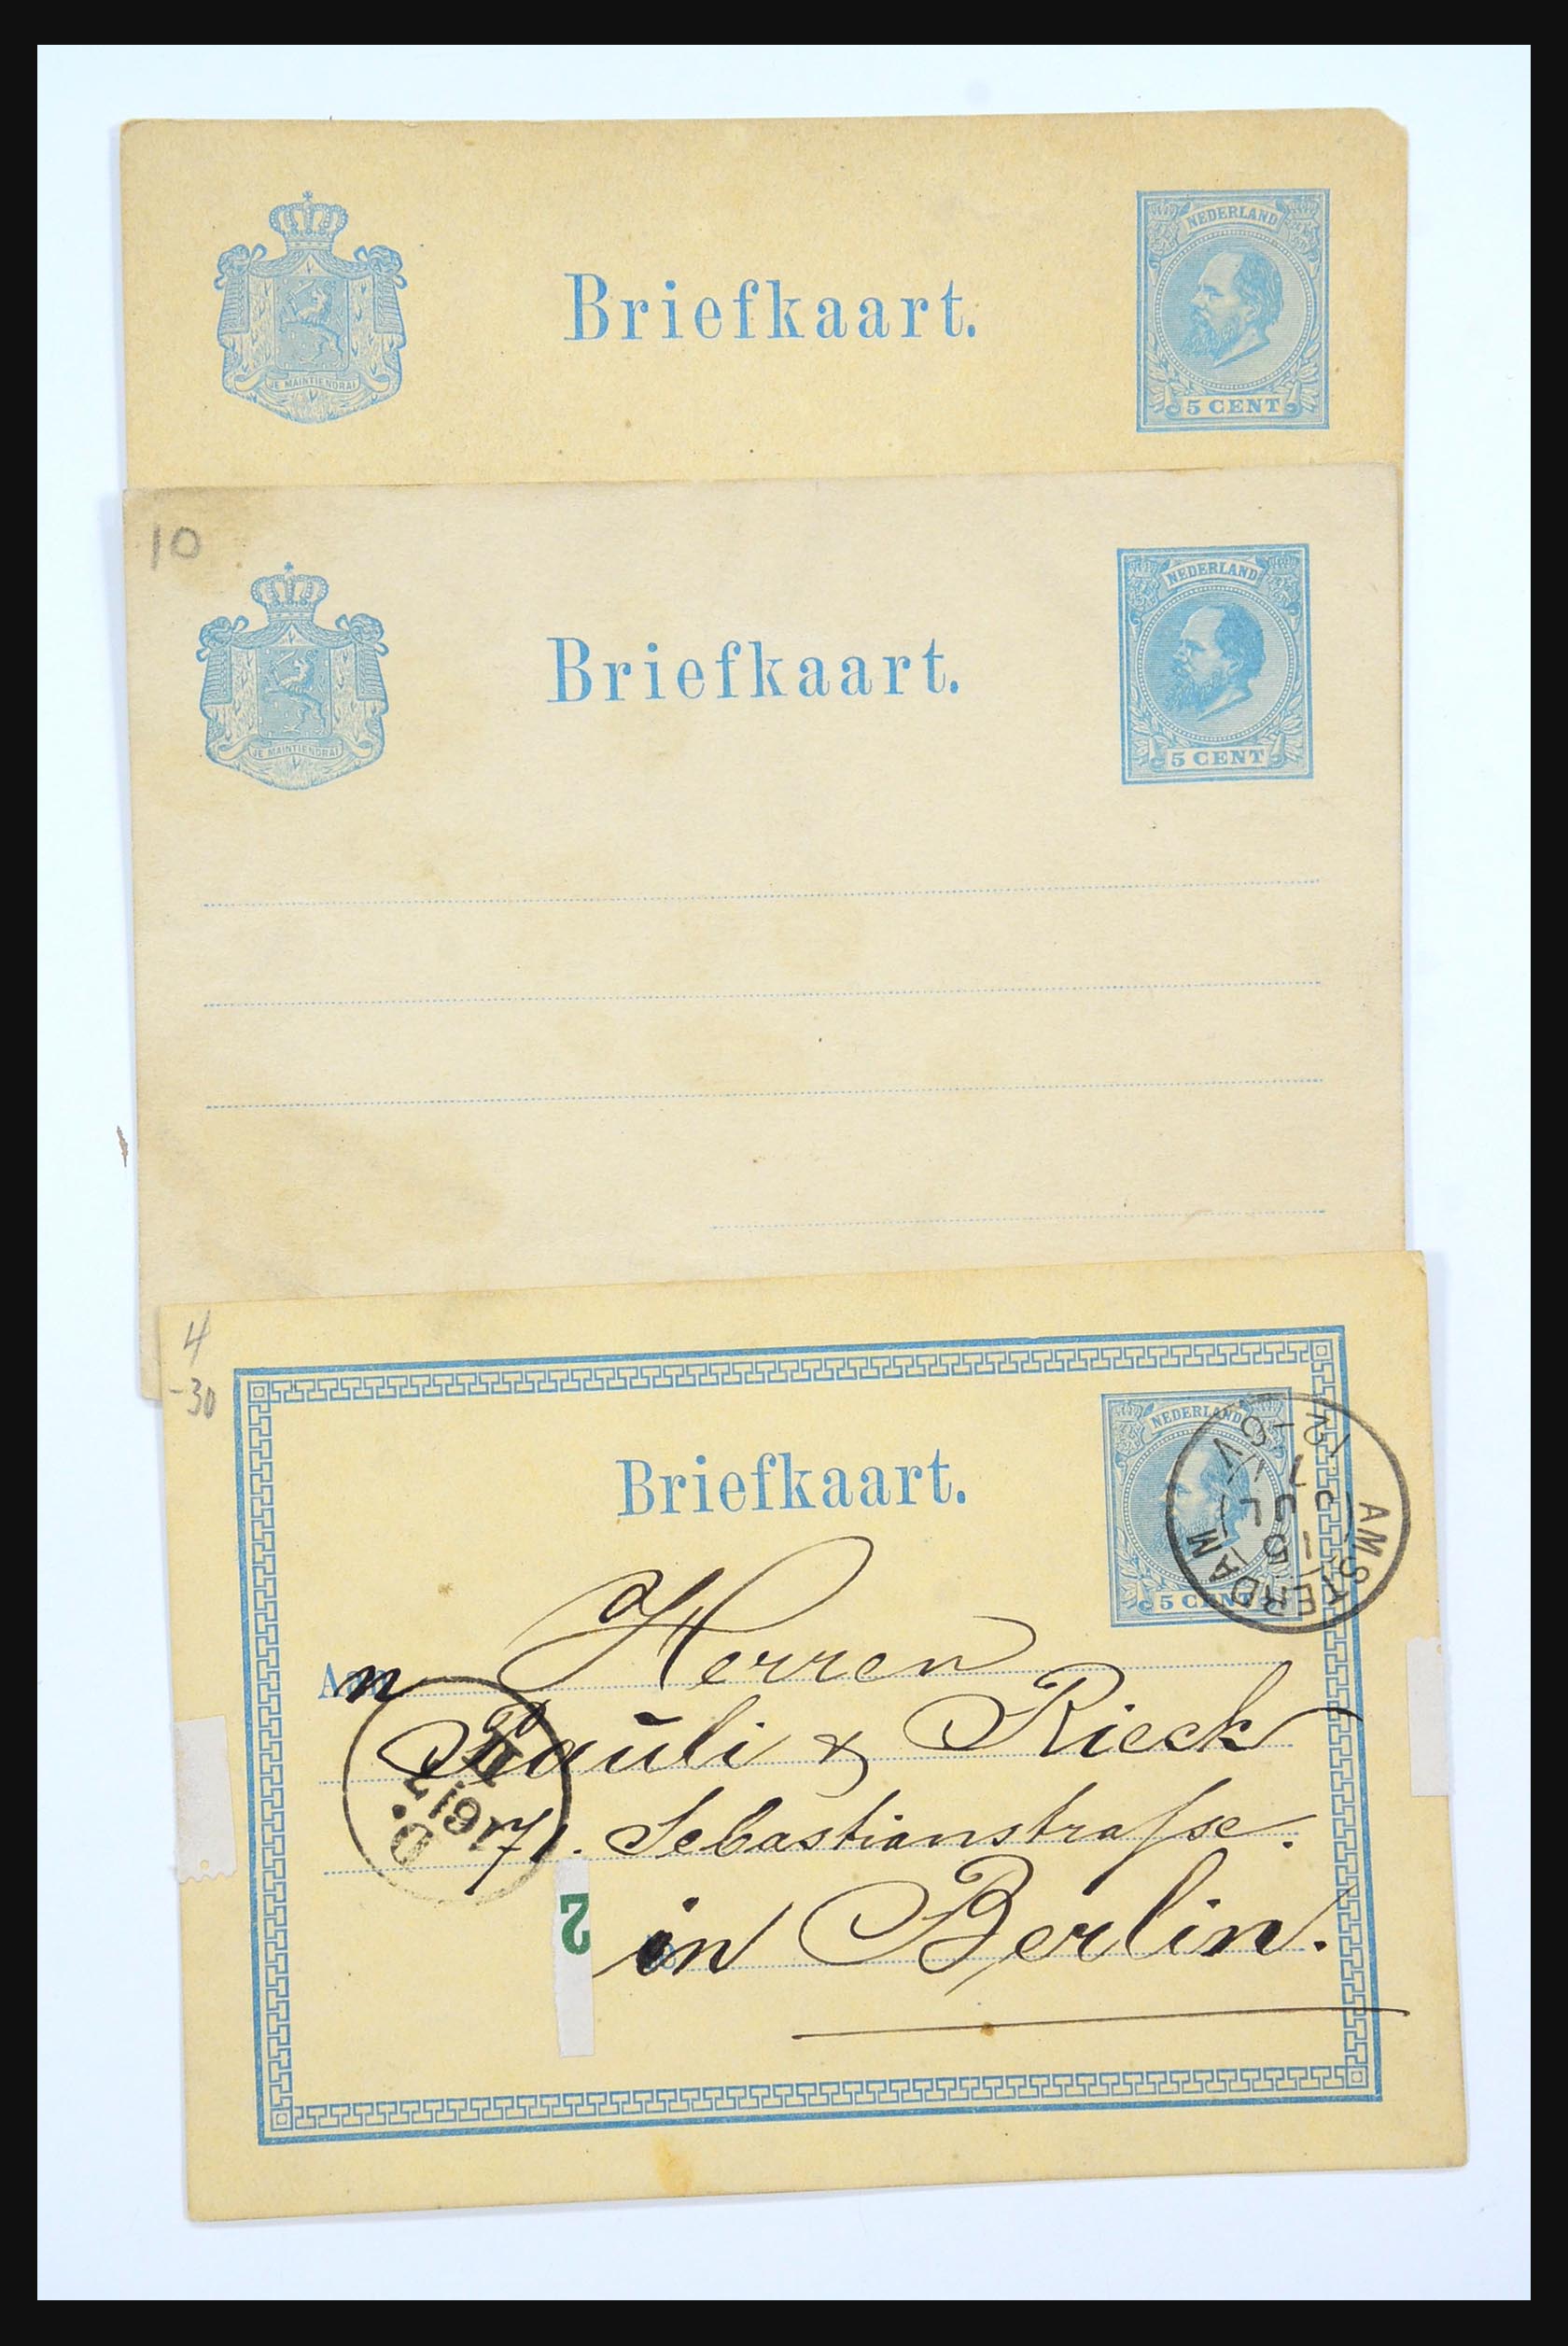 NEDERLAND
Briefkaart.
JE MAINTIENDRAI
5 CENT
10
NEDERLAND
Briefkaart.
JE MAINTIENDRAI
5 CENT
4
-30
NEDERLAND
Briefkaart.
5 CENT
AMSTERDAM
Herren
Pauli & Rieck
71. Sebastianstraſse.
2
in Berlin.